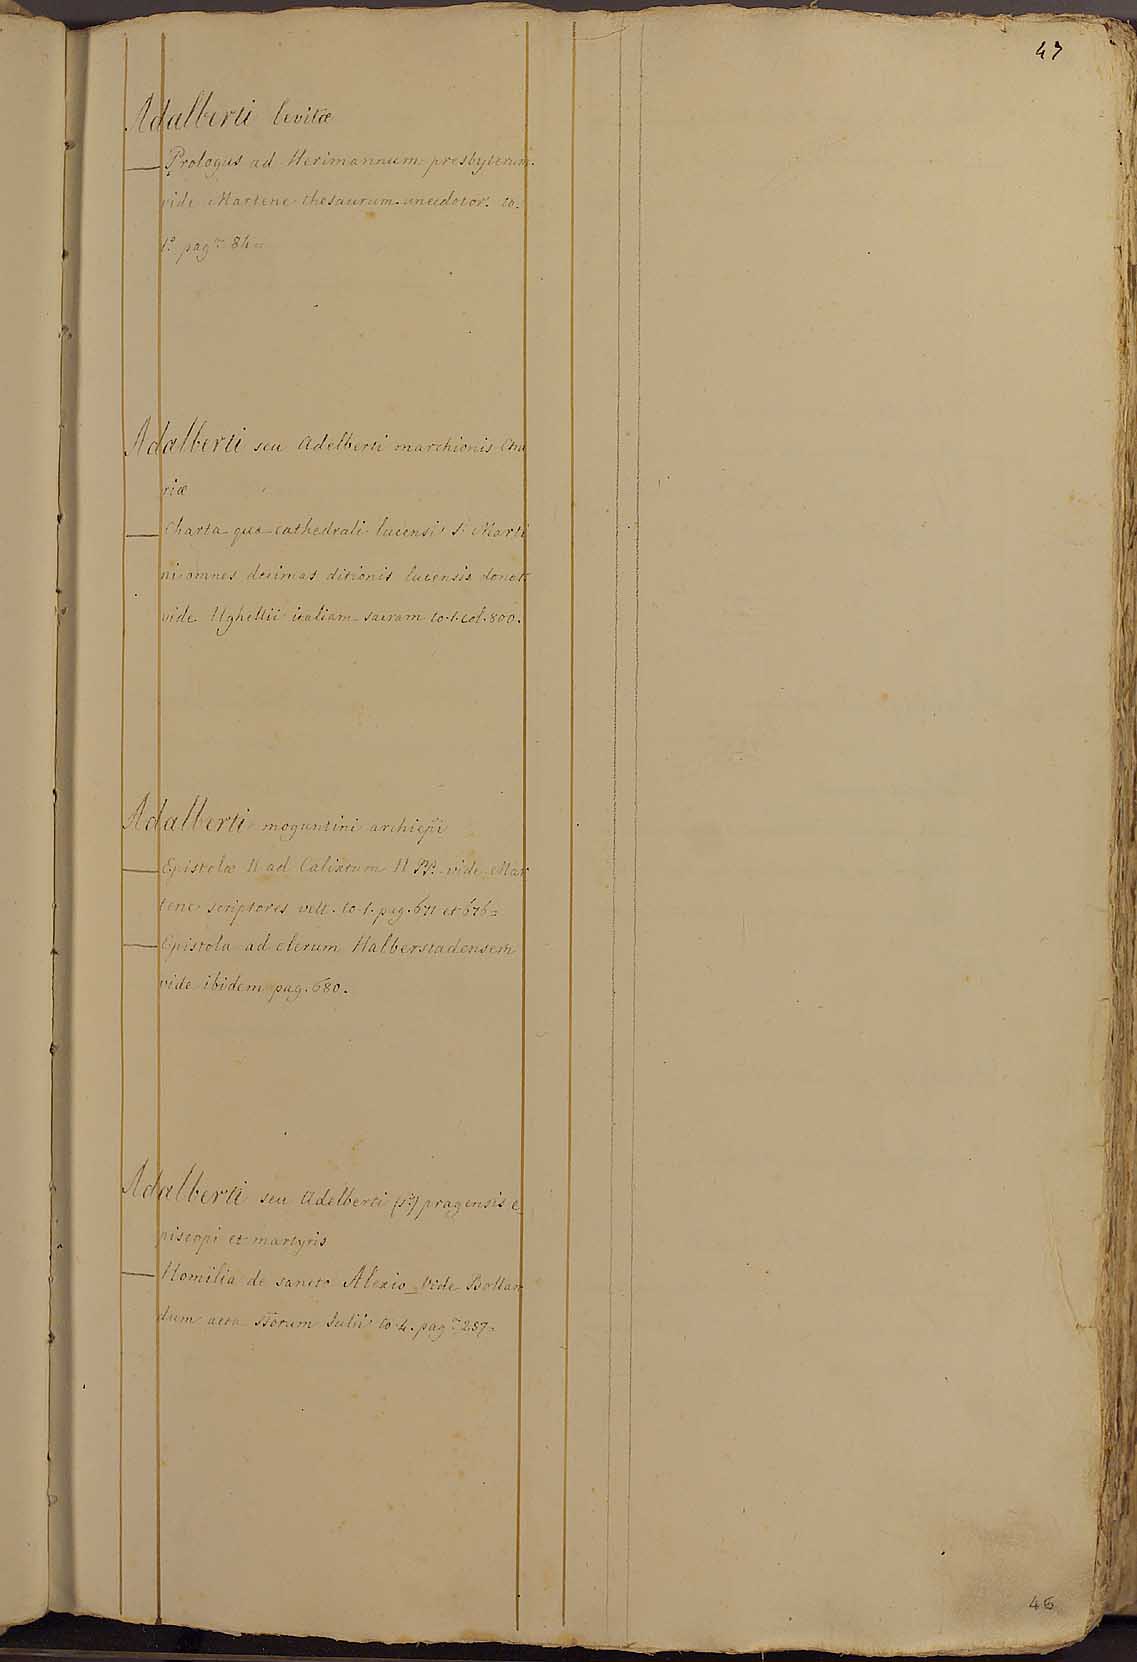 47
Adalberti levitæ
— Prologus ad Herimannum presbyterum.
vide Martene thesaurum anecdotor. to.
1.º pag.ª 84=
Adalberti seu Adelberti marchionis Etru
riæ
— Charta qua cathedrali lucensi S. Marti
ni omnes decimas ditionis lucensis donat
vide Ughellii italiam sacram to. 1. col. 800.
Adalberti moguntini archiepi
— Epistolæ II ad Calixtum II PP. vide Mar
tene scriptores vett. to. 1. pag. 671 et 676=
— Epistola ad clerum Halberstadensem
vide ibidem pag. 680.
Adalberti seu Adelberti (S.ti) pragensis e_
piscopi et martyris
— Homilia de sancto Alexio_ Vide Bollan
dum acta SSorum Julii to. 4. pag.ª 257=
46